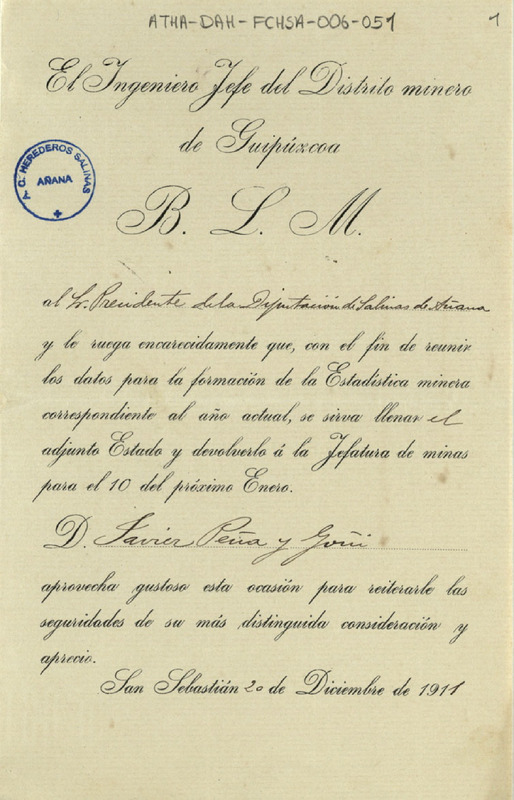 ATHA-DAH-FCHSA-006-051
1
El Ingeniero Jefe del Distrito minero
de Guipúzcoa
A. C. HEREDEROS SALINAS
AÑANA
B. L. M.
al Sr. Presidente de la Diputación de Salinas de Añana
y le ruega encarecidamente que, con el fin de reunir
los datos para la formación de la Estadística minera
correspondiente al año actual, se sirva llenar el
adjunto Estado y devolverlo á la Jefatura de minas
para el 10 del próximo Enero.
D. Javier Peña y Goñi
aprovecha gustoso esta ocasión para reiterarle las
seguridades de su más distinguida consideración y
aprecio.
San Sebastián 20 de Diciembre de 1911